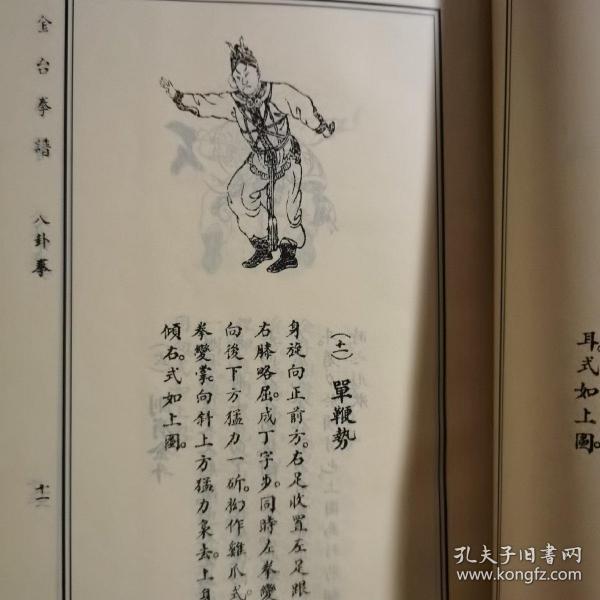 耳。式如上圖。
(十一) 單鞭勢
身旋向正前方。右足收置左足跟
右膝略屈。成丁字步。同時左拳變
向後下方猛力一斫。抝作雞爪式。
拳變掌向斜上方猛力梟去。上身
傾右。式如上圖。
金台拳譜 八卦拳 十一
孔夫子旧书网
www.kongfz.com